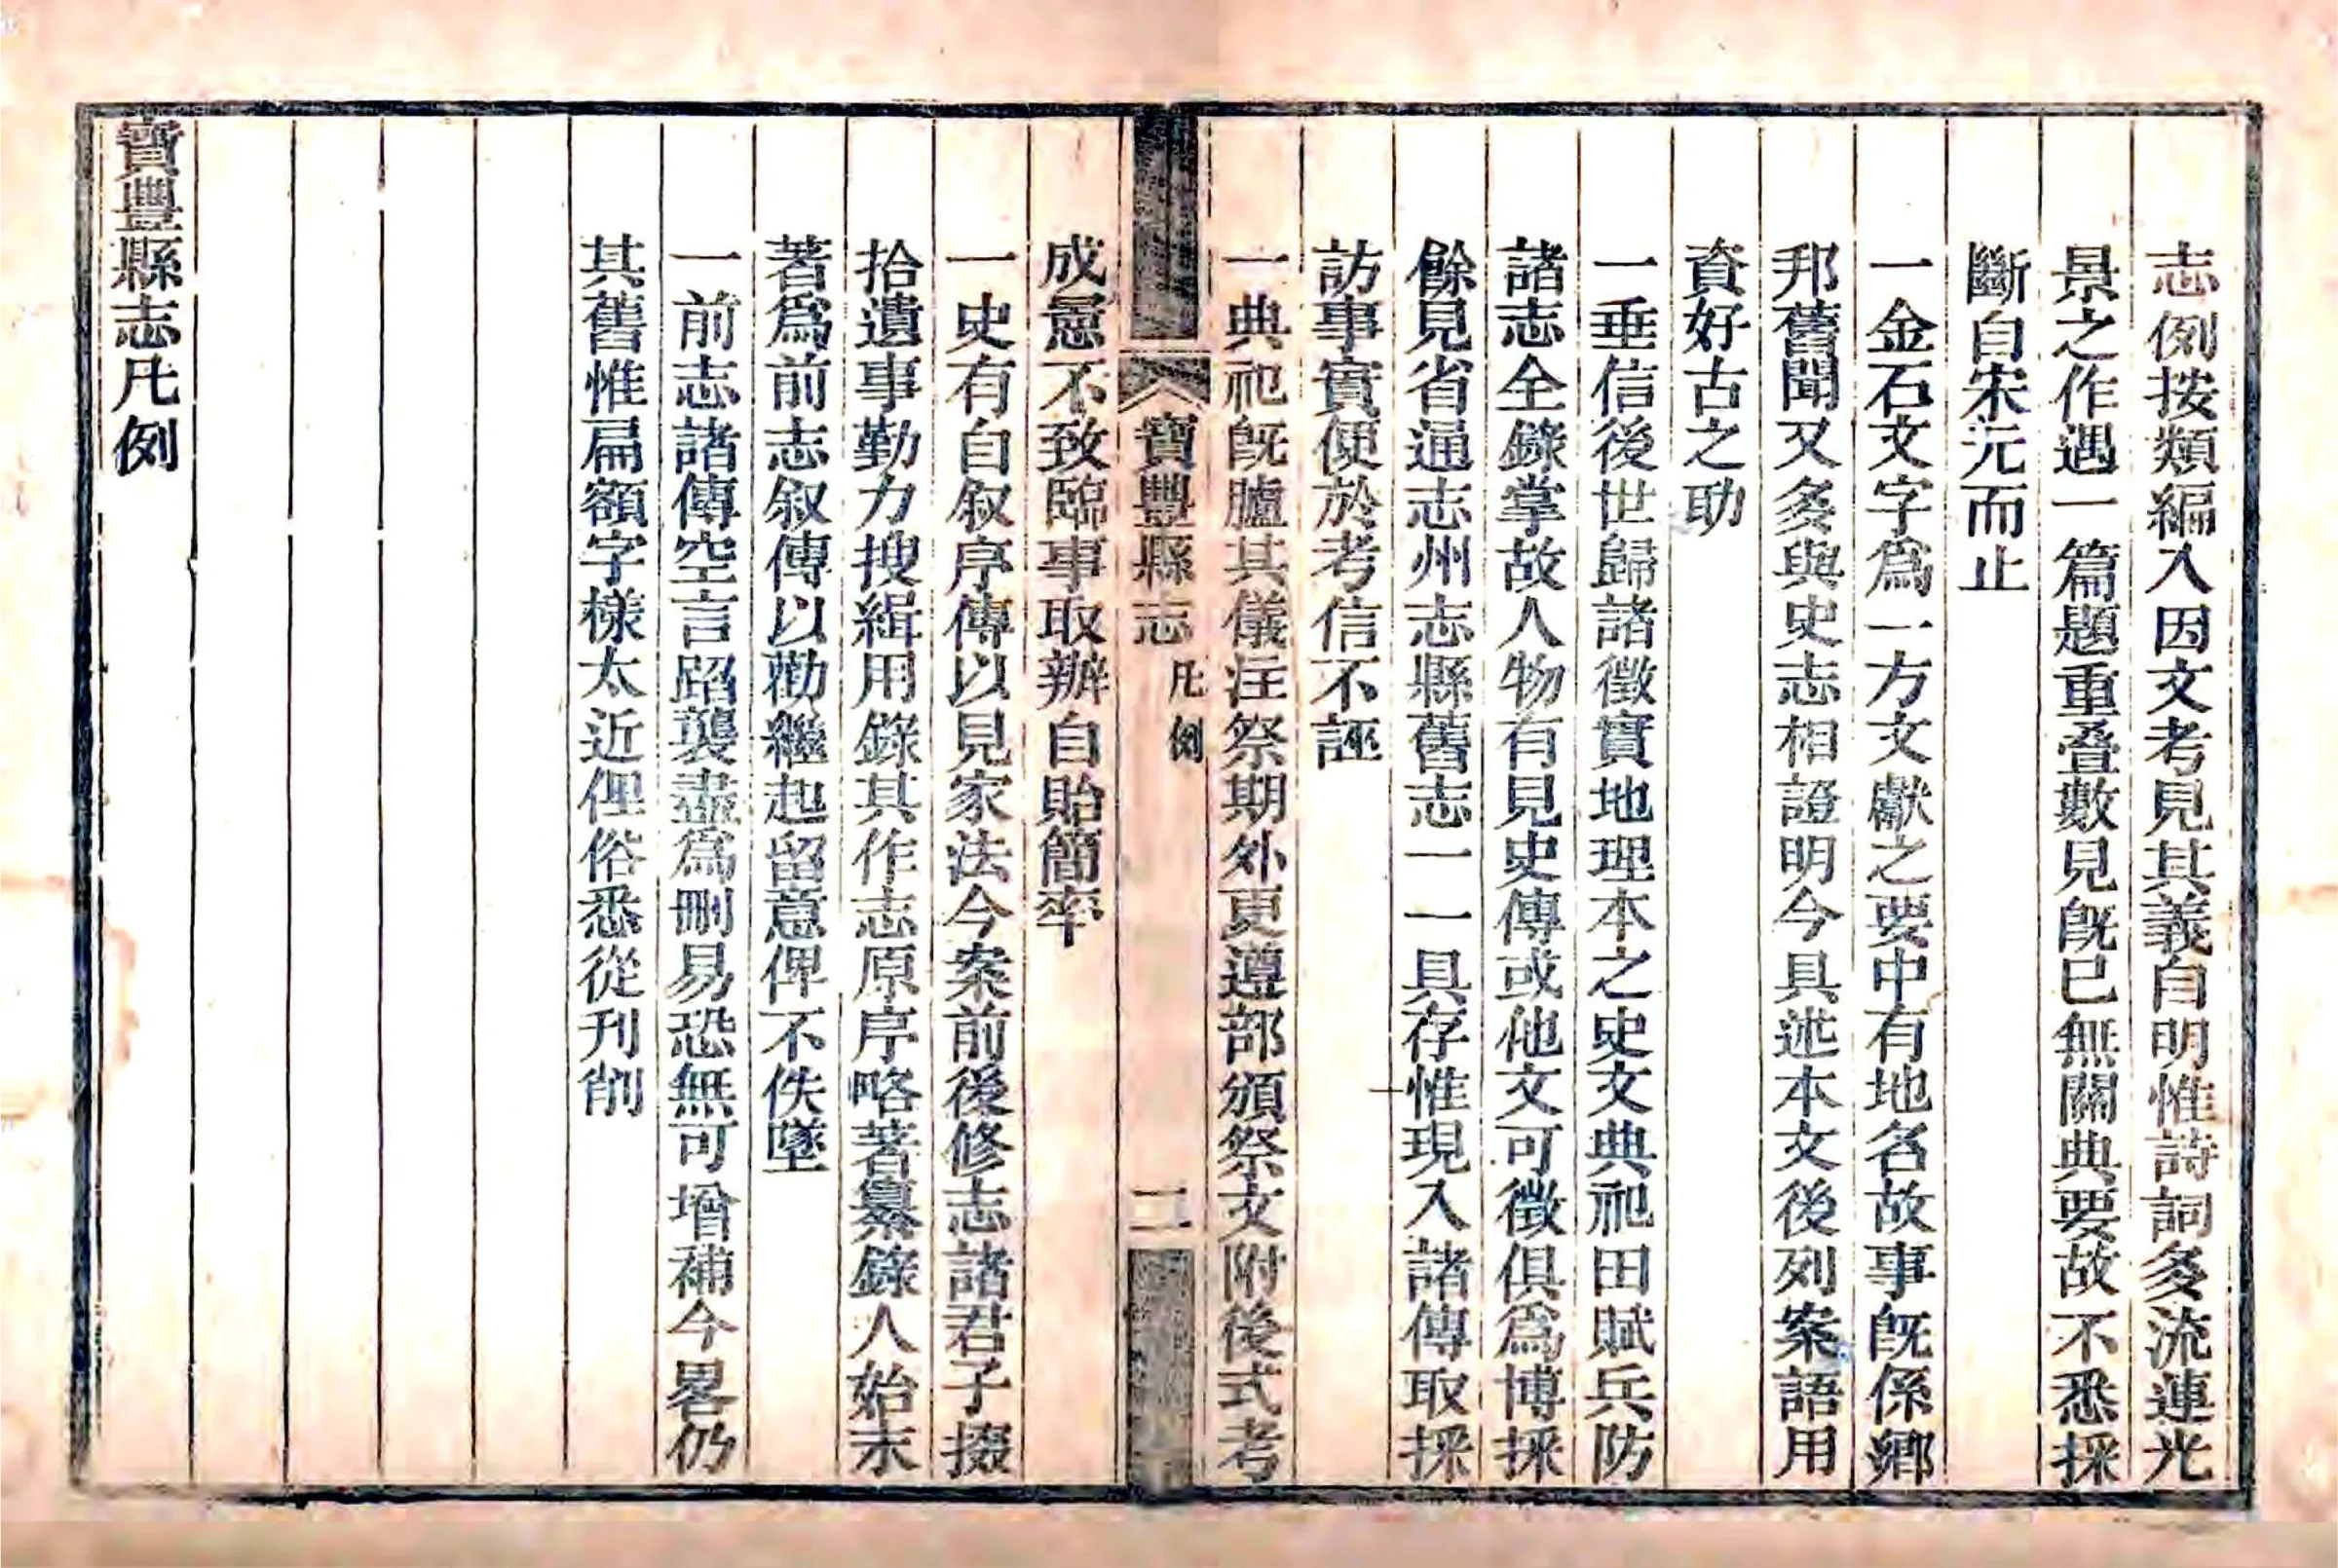 志例按類編入因文考見其義自明惟詩詞多流連光
景之作遇一篇題重叠數見旣已無關典要故不悉採
斷自宋元而止
一金石文字爲一方文獻之要中有地名故事旣係鄉
邦舊聞又多與史志相證明今具述本文後列案語用
資好古之助
一垂信後世歸諸徵實地理本之史文典祀田賦兵防
諸志全錄掌故人物有見史傳或他文可徵俱爲博採
餘見省通志州志縣舊志一一具存惟現入諸傳取採
訪事實便於考信不誣
一典祀旣臚其儀注祭期外更遵部頒祭文附後式考
寶豐縣志
凡例
二
成憲不致臨事取辦自貽簡率
一史有自叙序傳以見家法今案前後修志諸君子掇
拾遺事勤力搜緝用錄其作志原序略著纂錄人始末
著爲前志叙傳以勸繼起留意俾不佚墜
一前志諸傳空言蹈襲盡爲刪易恐無可增補今畧仍
其舊惟扁額字樣太近俚俗悉從刊削
寶豐縣志凡例